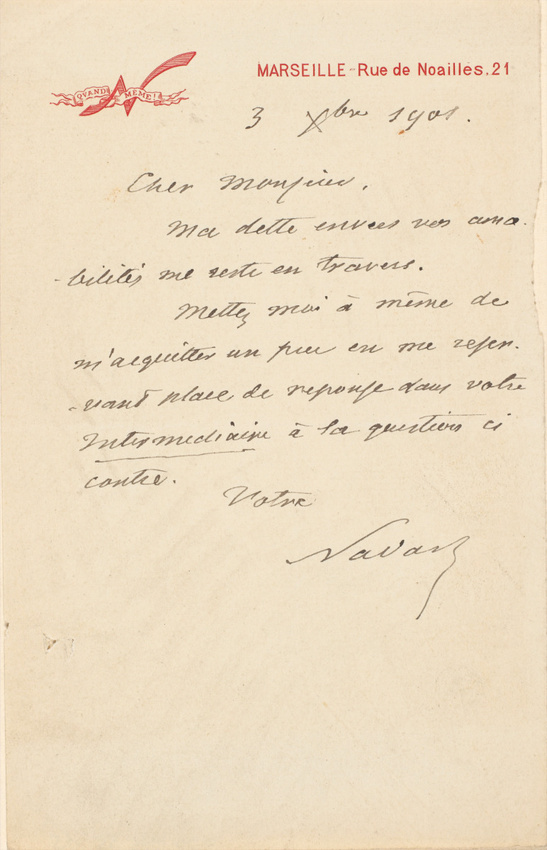 QUAND MÊME!
MARSEILLE - Rue de Noailles. 21
3 Xbre 1901.
Cher Monsieur,
Ma dette envers vos ama-
-bilités me reste en travers.
Mettez moi à même de
m'acquitter un peu en me réser-
-vant place de reponse dans votre
Intermediaire à la question ci
contre.
Votre
Nadar